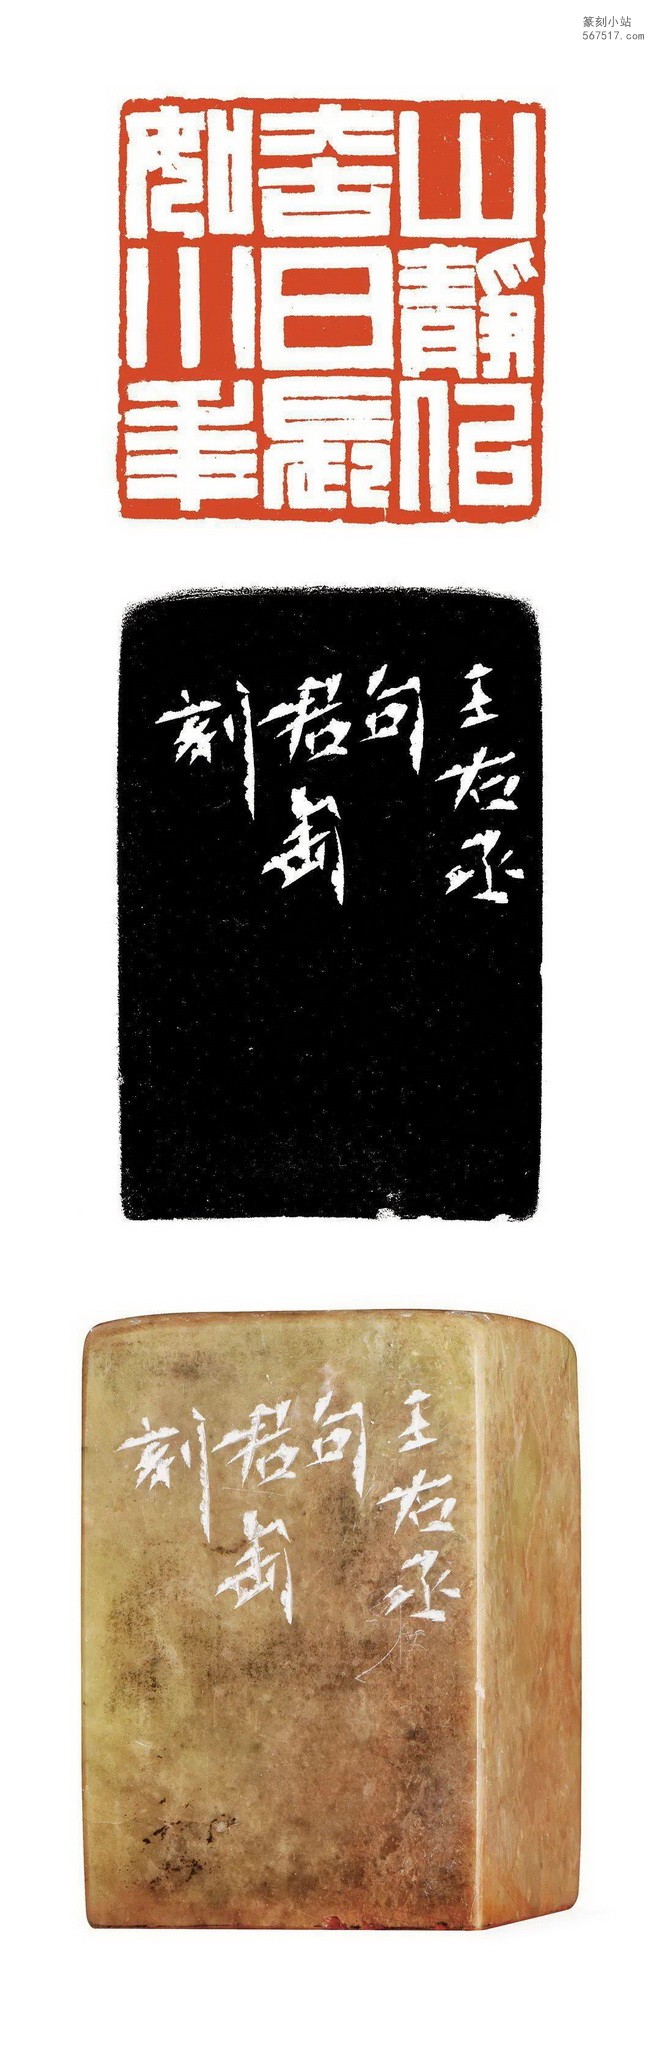 篆刻小站
567517.com
山靜似
太古日長
如小年
王右丞
句
君匋
刻
王右丞
句
君匋
刻